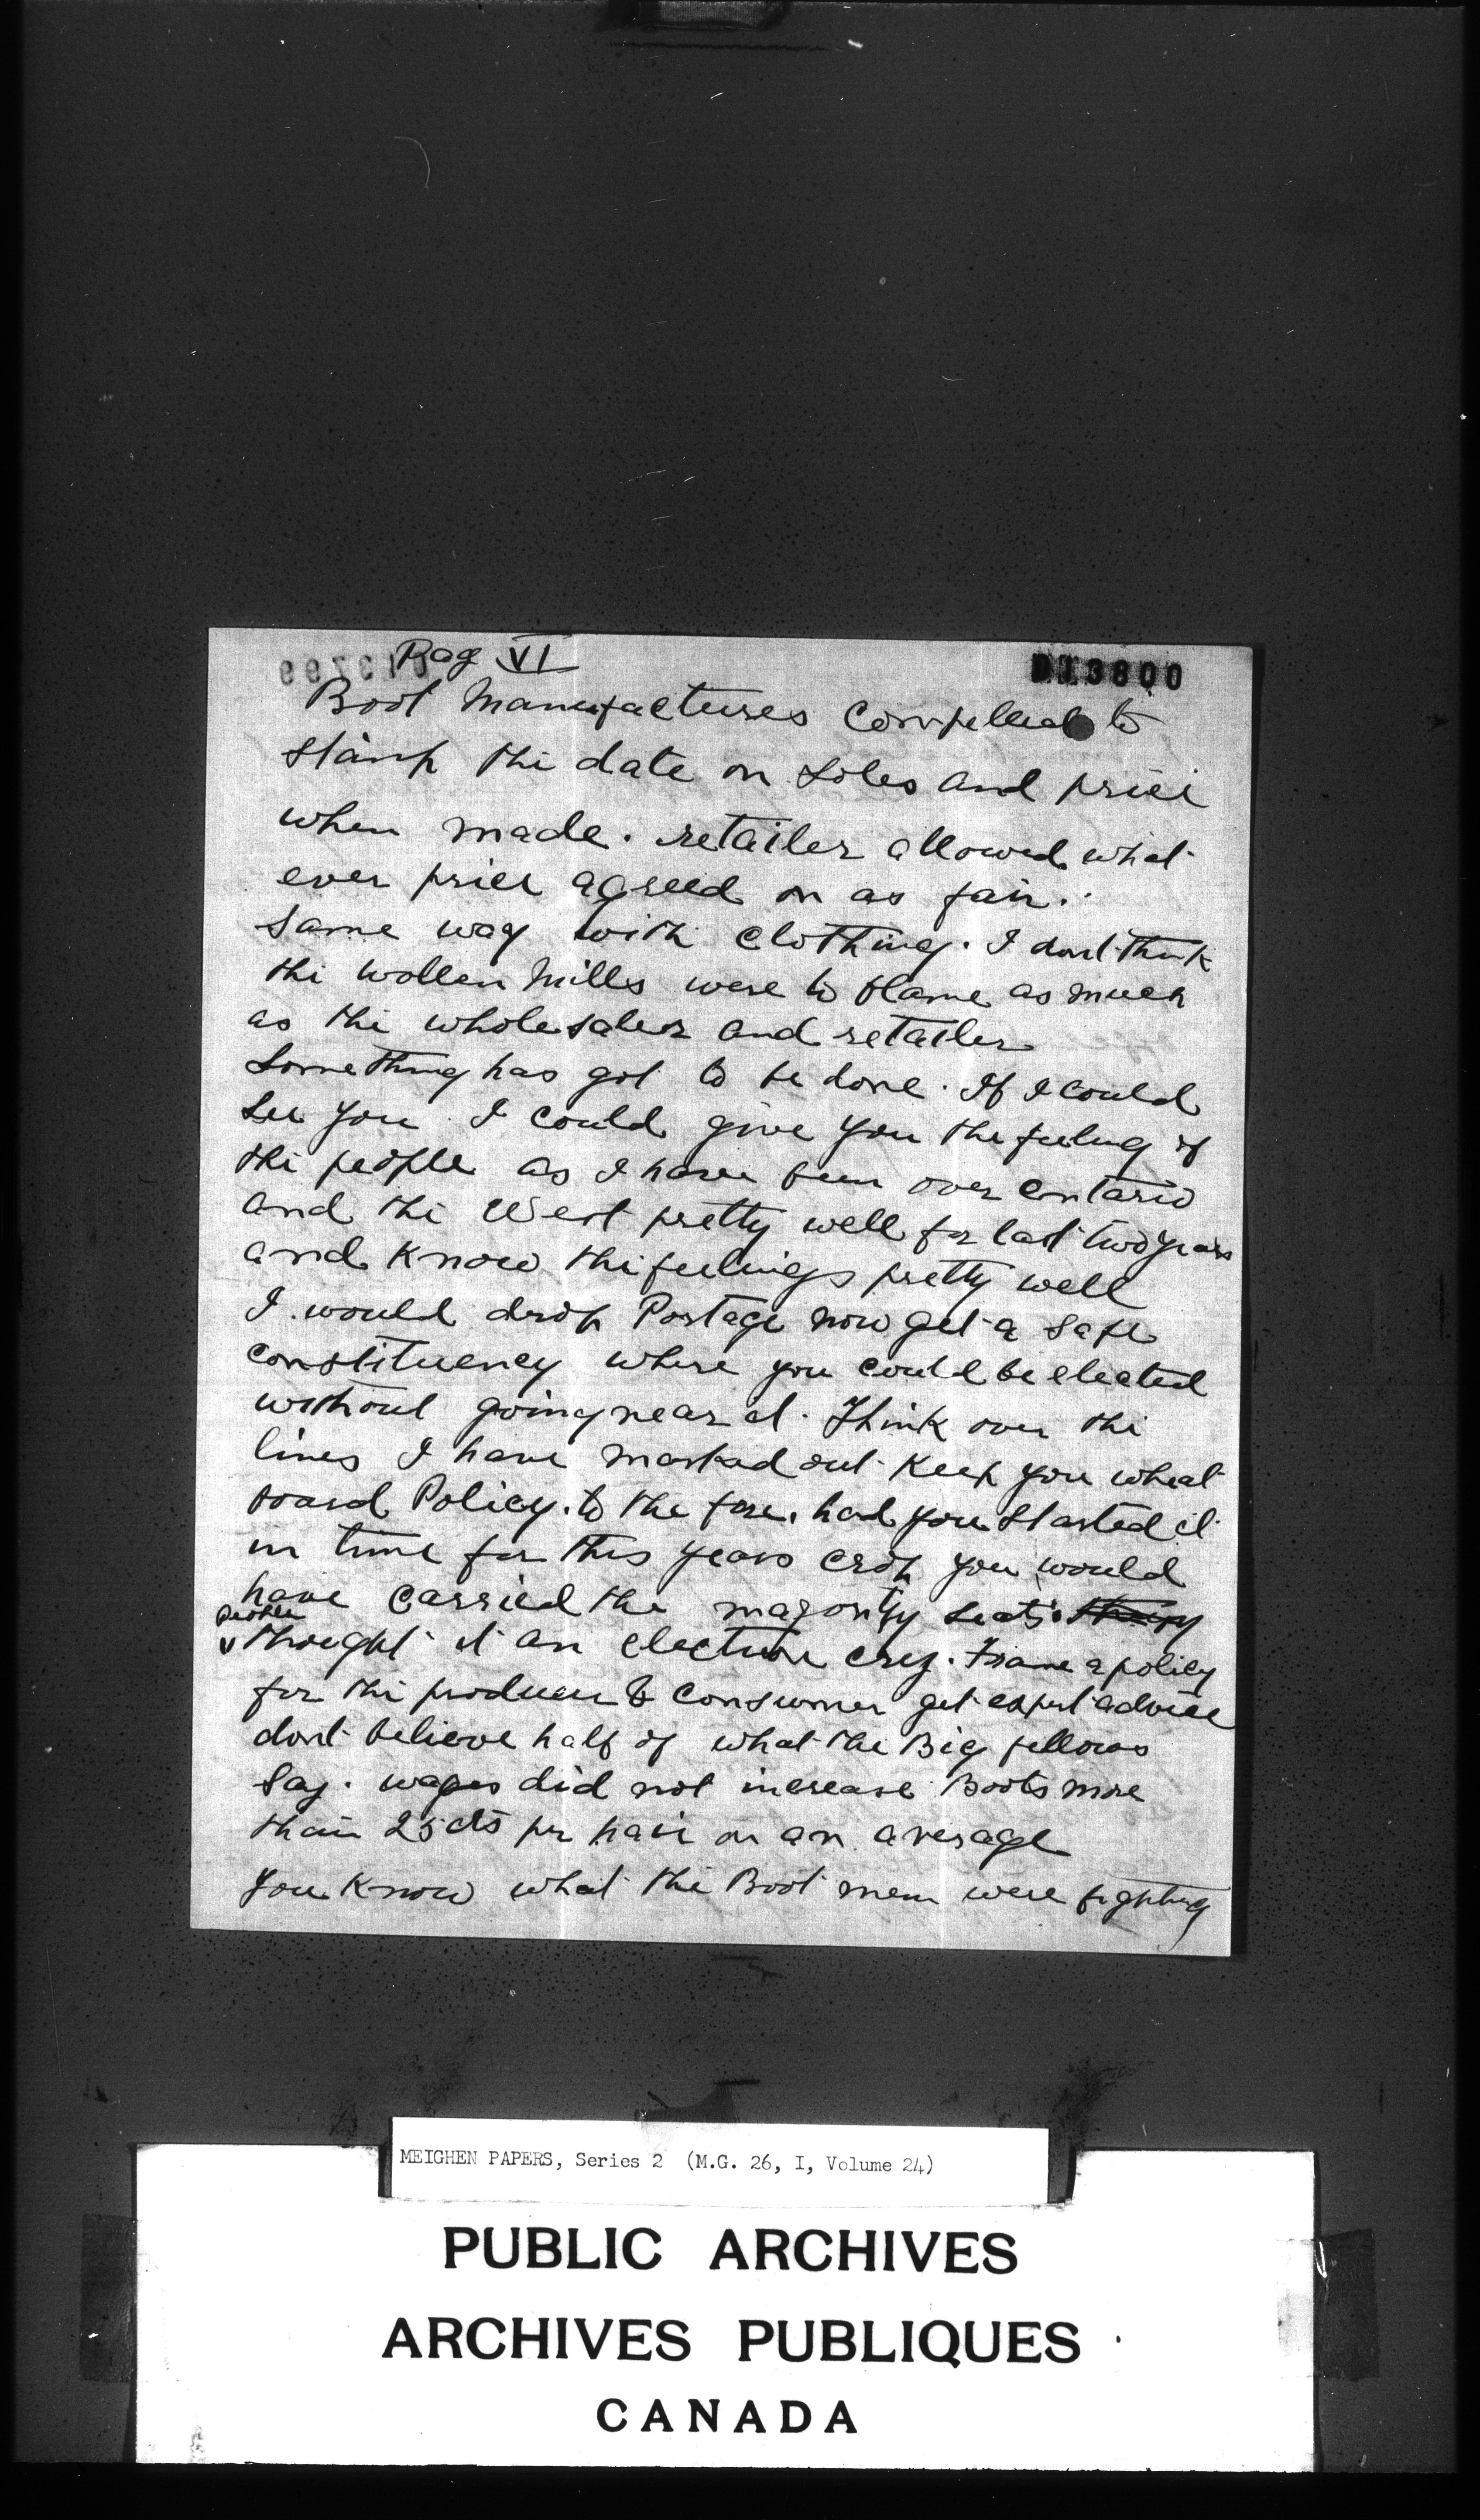 Pag VI
013800
Boot Manufactures Compelled to
stamp the date on Soles and price
when made. retailer allowed what
ever price agreed on as fair.
Same way with Clothing. I dont think
the wollen Mills were to blame as much
as the wholesaler and retailer
Something has got to be done. If I could
See you I could give you the feeling of
the people as I have been over Ontario
and the West pretty well for last two years
and know the feelings pretty well
I would drop Portage now get a safe
constituency where you could be elected
without going near it. Think over the
lines I have marked out Keep you wheat
board Policy to the fore. had you started it
in time for this years crop you would
have carried the majority seats
people
thought it an election cry. Frame a policy
for the producer & Consumer get expert advice
dont believe half of what the Big fellows
Say. wages did not increase Boots more
than 25 cts pr pair on an average
you Know what the Boot men were fighting
MEIGHEN PAPERS, Series 2 (M.G. 26, I, Volume 24)
PUBLIC ARCHIVES
ARCHIVES PUBLIQUES
CANADA